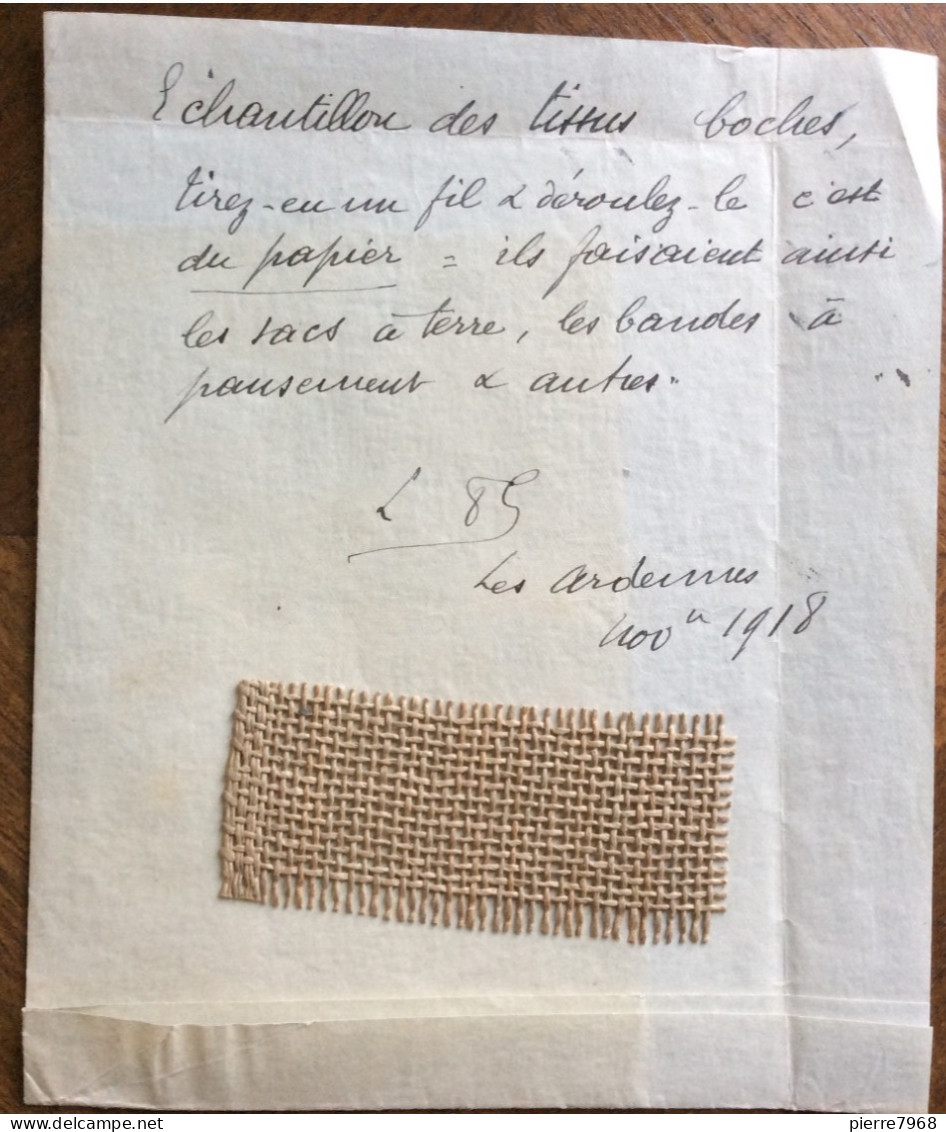 Echantillon des tissus boches,
tirez-en un fil & déroulez-le c'est
du papier = ils faisaient ainsi
les sacs à terre, les bandes à
pansement & autres.
Les Ardennes
nov 1918
pierre7968